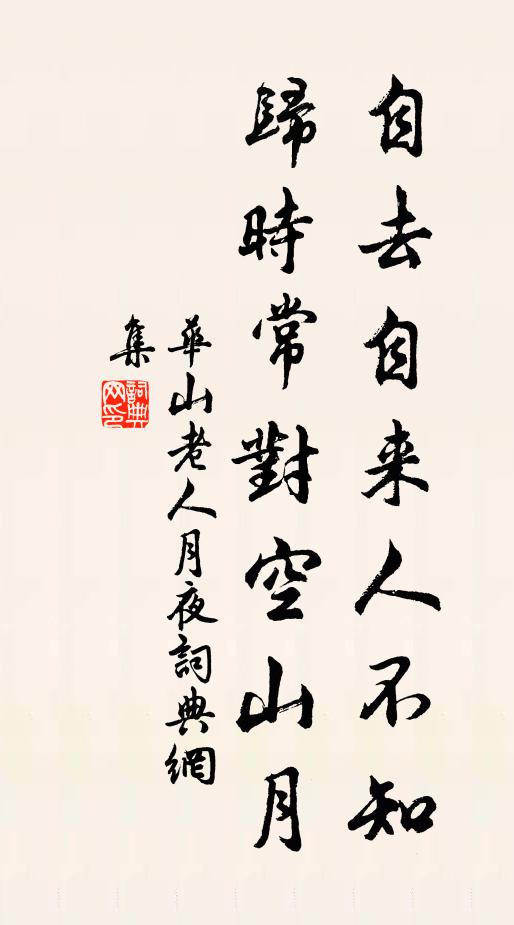 自去自来人不知
歸時常對空山月
華山老人月夜詞典網
集
詞典
网印